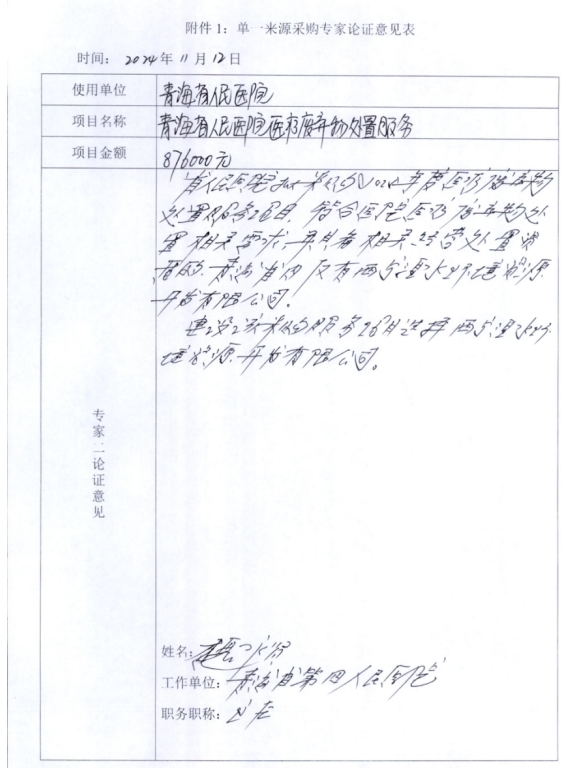 附件 1：单一来源采购专家论证意见表
时间： 2024年 11 月 12日
使用单位 青海省人民医院
项目名称 青海省人民医院医疗废弃物处置服务
项目金额 876000元
省人民医院拟采购2024年普医疗废弃物
处置服务项目，符合医院医疗废弃物处
置相关要求，并具备相关经营处置资
质的，青海省内仅有
环境资源
开发有限公司。
建议该采购服务项目选择
环
境资源开发有限公司。
专家二论证意见
姓名：
工作单位：青海省第四人民医院
职务职称：